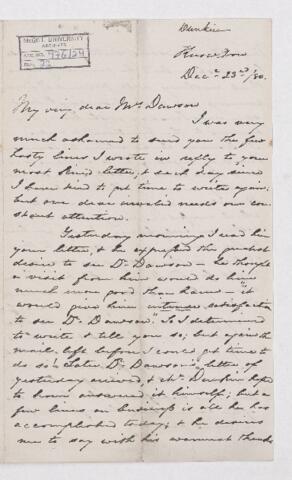 McGILL UNIVERSITY
ARCHIVES
ACC. NO. 976/24
REF. 22
Dunkin
Knowlton
Decr 23rd/80.
My very dear Mrs Dawson
I was very
much ashamed to send you the few
hasty lines I wrote in reply to your
most kind letter, & each day since
I have tried to get time to write again;
but our dear invalid needs our con-
stant attention.
Yesterday morning I read him
your letter, & he expressed the greatest
desire to see Dr Dawson - he thought
a visit from him would do him
much more good than harm - "it
would give him intense satisfaction
to see Dr Dawson". So I determined
to write & tell you so; but again the
mail left before I could get time to
do so. Later Dr Dawson's letter of
yesterday arrived, & Mr Dunkin hoped
to have answered it himself; but a
few lines on business is all he has
accomplished today; & he desires
me to say with his warmest thanks